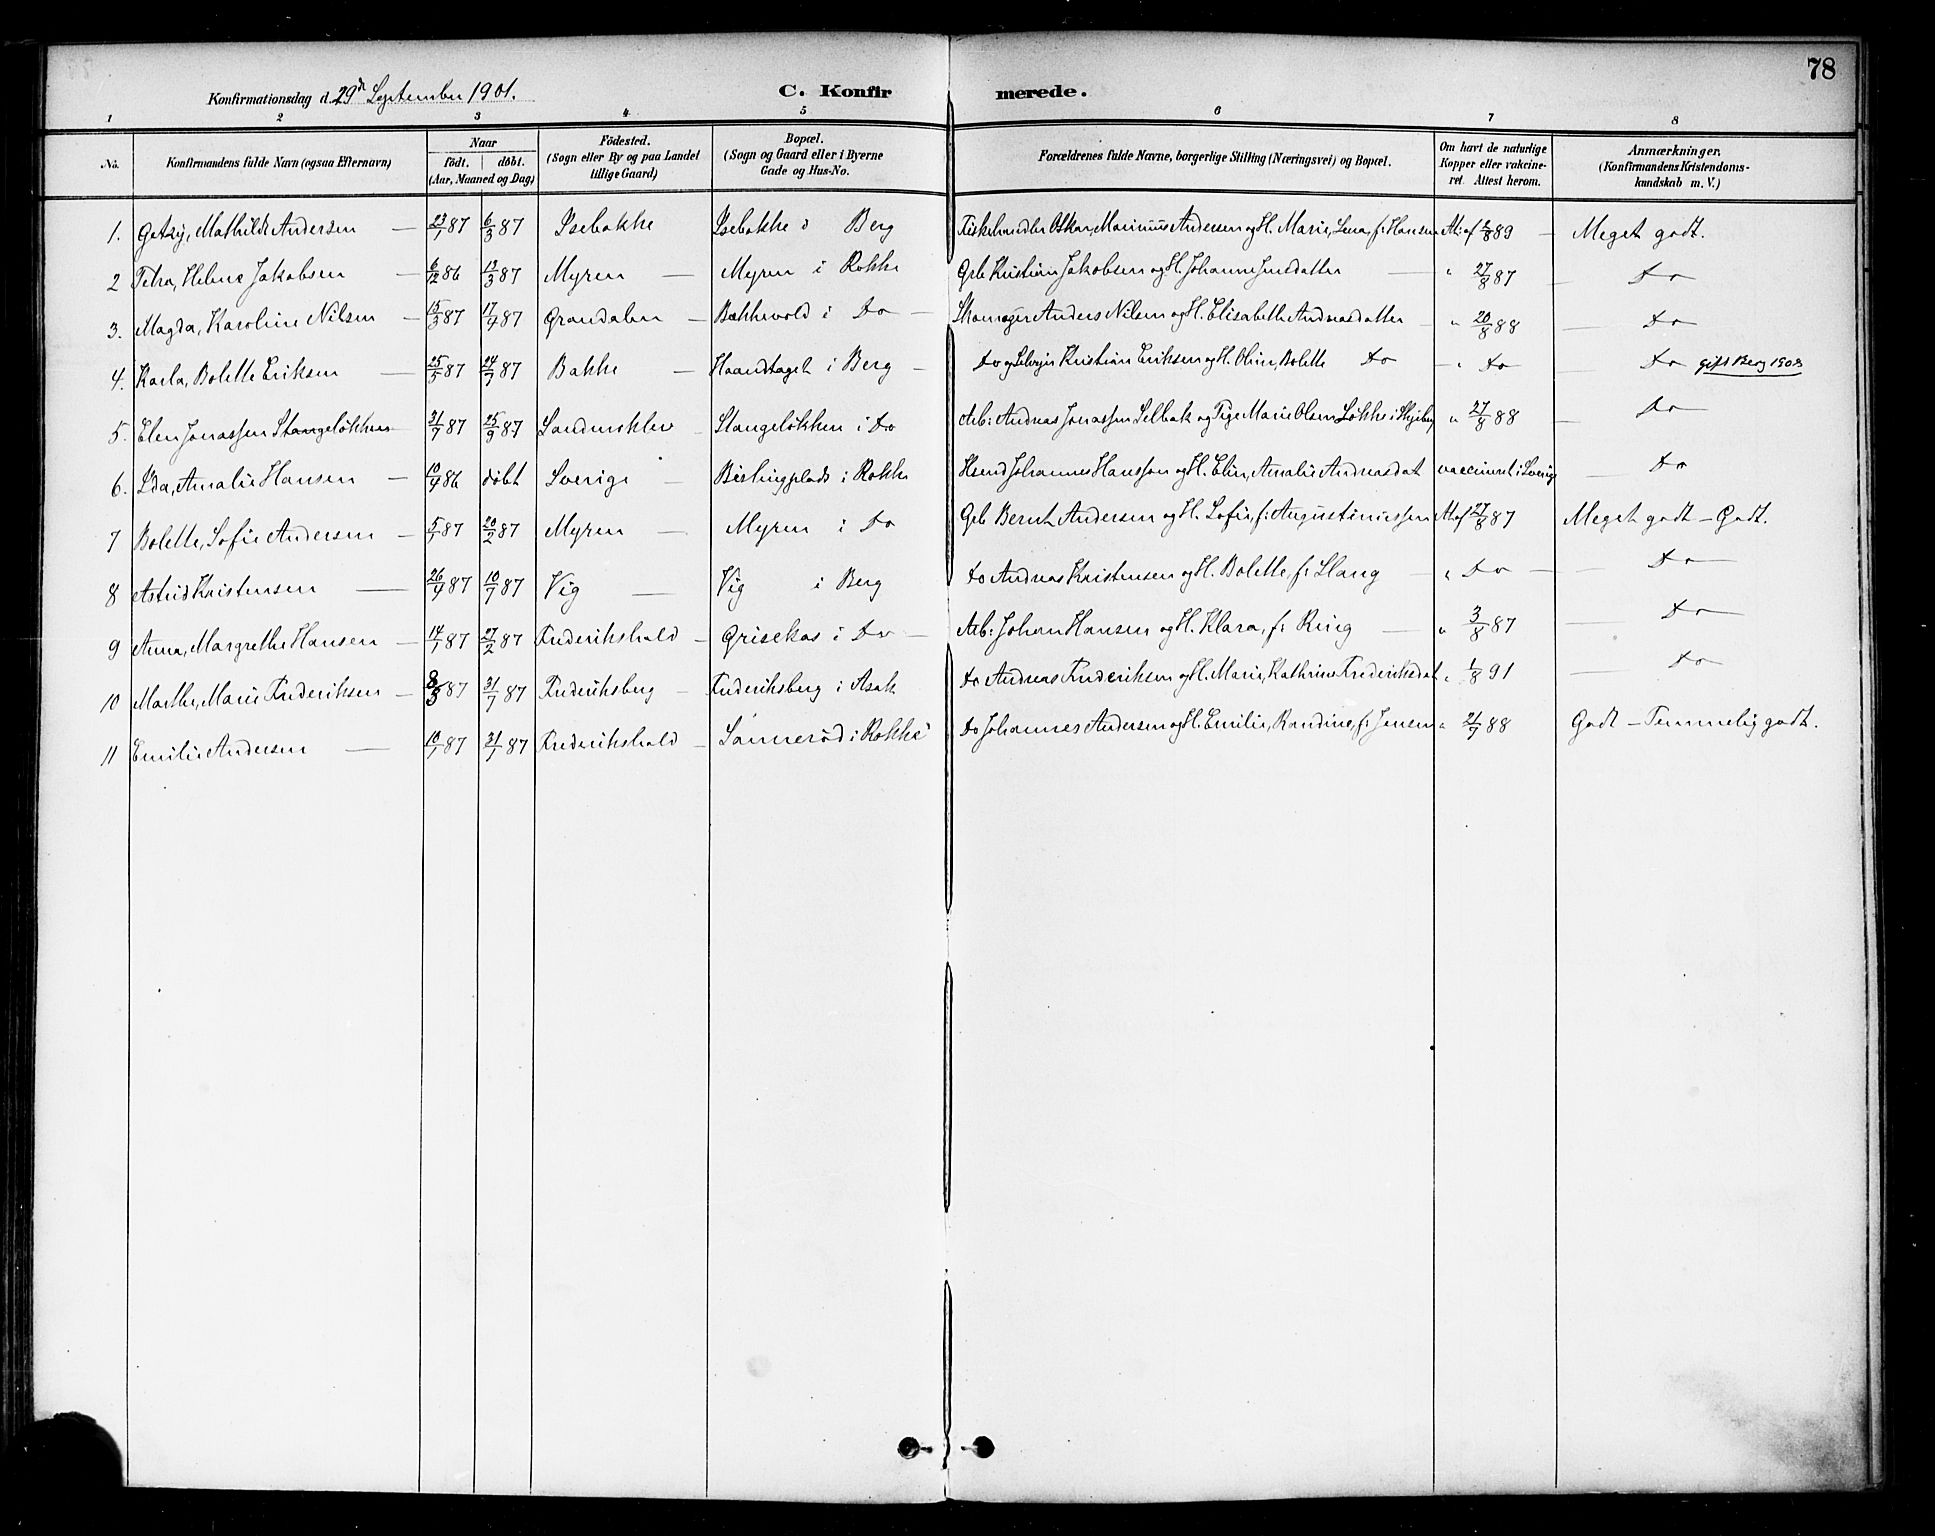 78
Konfirmationsdag d. 29d September 1901. C. Konfirmerede.
1 2 3 4 5 6 7 8
No. Konfirmandens fulde Navn (ogsaa Efternavn) Naar født. døbt. (Aar, Maaned og Dag) Fødested. (Sogn eller By og paa Landet tillige Gaard) Bopæl. (Sogn og Gaard eller i Byerne Gade og Hus-No. Forældrenes fulde Navne, borgerlige Stilling (Næringsvei) og Bopæl. Om havt de naturlige Kopper eller vakcineret. Attest herom. Anmærkninger. (Konfirmandens Kristendomskundskab m. V.)
1. Getzy, Mathilde Andersen — 23/1 87 6/3 87 Isebakke Isebakke i Berg Fiskehandler Oskar, Marinius Andersen og H. Marie, Lena, f: Hansen At: af /8 89 — Meget godt.
2 Petra, Helene Jakobsen — 6/12 86 13/3 87 Myren — Myren i Rokke Grb Kristian Jakobsen og H. Johanne Jensdatter — " 27/8 87 — Do
3. Magda, Karoline Nilsen — 15/3 87 17/4 87 Grandalen — Bakkevold i Do — Skomager Anders Nilsen og H. Elisabeth Andreasdatter — " 20/8 88 — Do
4. Karla, Bolette Eriksen — 25/5 87 24/7 87 Bakke — Haandtaget i Berg — Do og Selvejer Kristian Eriksen og H. Olin, Bolette Do — " Do — Do gift Berg 1908
5. Elen Jonassen Stangeløkken 31/7 87 25/9 87 Sandmoklev — Stangeløkken i Do Arb: Andreas Jonassen Selbak og Pige Marie Olsen Løkke i Skjeberg " 27/8 88 — Do
6. Ida, Amalie Hansen — 10/4 86 døbt Sverige — Bislingplads i Rokke Hsmd Johannes Hansson og H. Elin, Amalie Andreasdat vaccineret i Sverig — Do
7 Bolette, Sofie Andersen — 5/1 87 20/2 87 Myren — Myren i Do Grb Bernt Andersen og H. Sofie, f: Augustiniussen At af 27/8 87 Meget godt — Godt.
8 Astrid Kristensen — 26/4 87 10/7 87 Vig — Vig i Berg Do Andreas Kristensen og H. Bolette, f: Slang — " Do — — Do
9 Anna, Margrethe Hansen — 14/1 87 27/2 87 Frederikshald — Grisekas i Do — Arb: Johan Hansen og H. Klara, f: Ring — " 3/8 87 — Do
10 Marthe, Marie Frederiksen — 8/5 87 31/7 87 Frederiksberg — Frederiksberg i Asak Do Andreas Frederiksen og H. Marie, Kathrine Frederiksdat " 1/8 91 — Do
11 Emilie Andersen — 10/1 87 31/7 87 Frederikshald — Sønnerød i Rokke Do Johannes Andersen og H. Emilie, Randine, f: Jensen " 21/7 88 Godt — Temmelig godt.